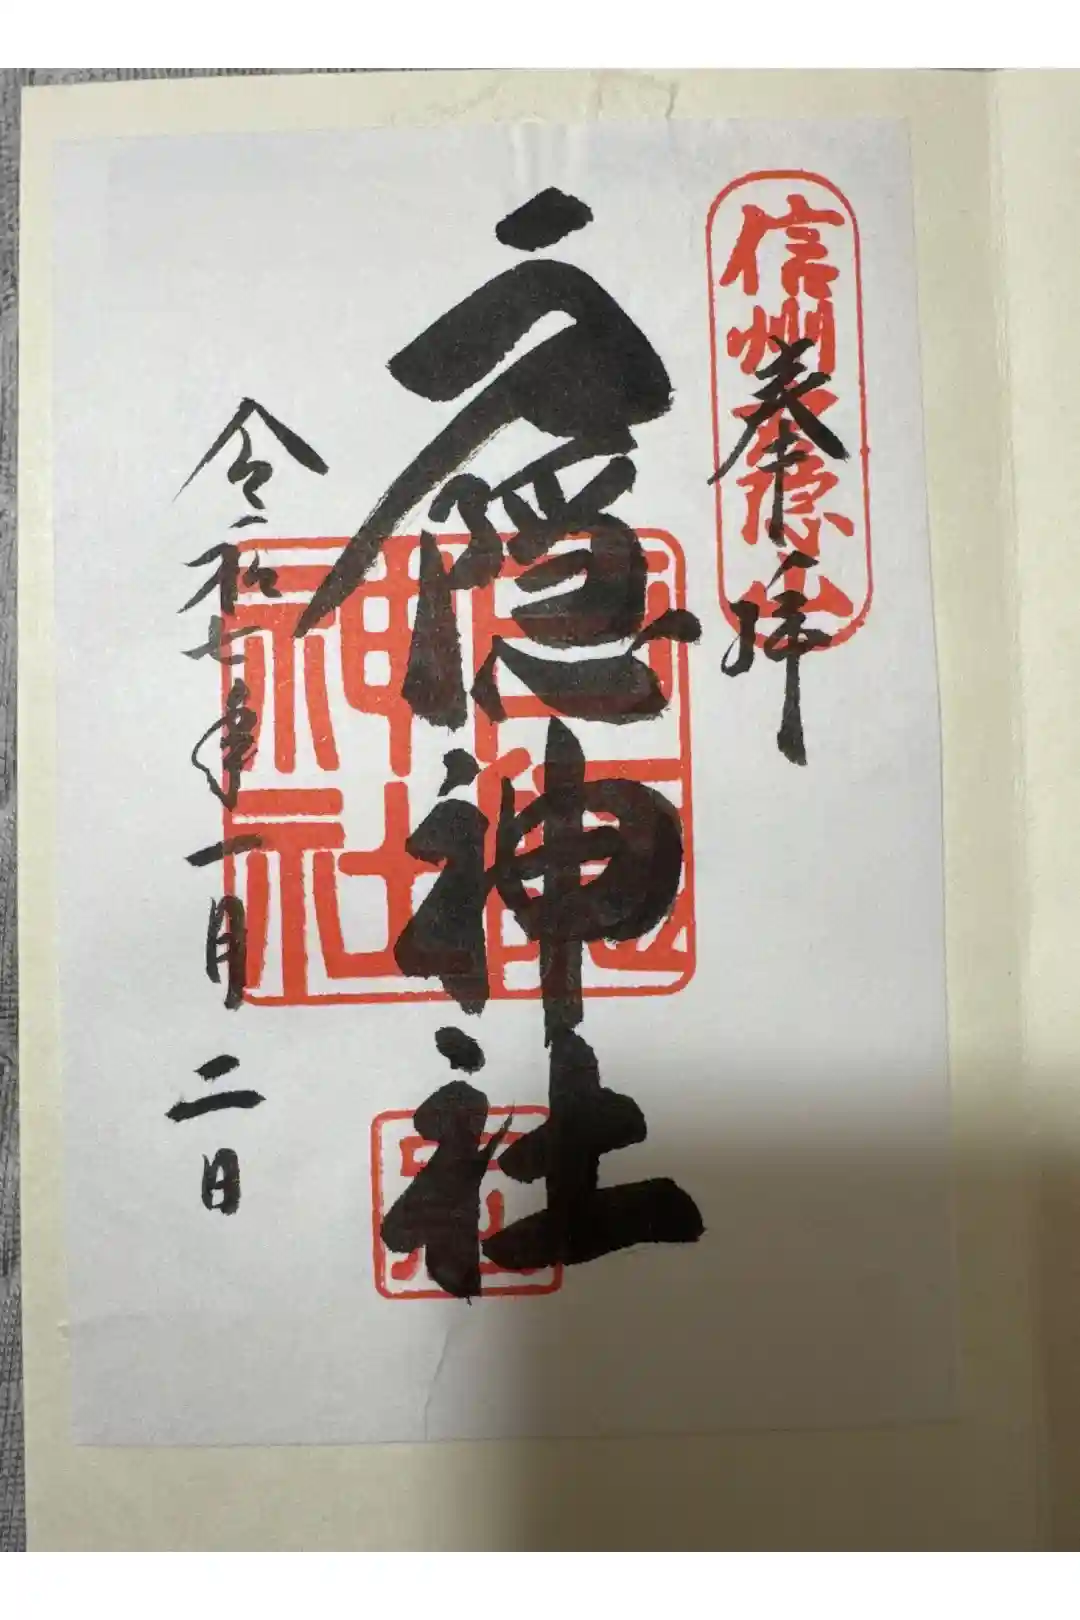 信州戸隠山
奉拝
戸隠神社
戸隠神社
令和七年一月二日